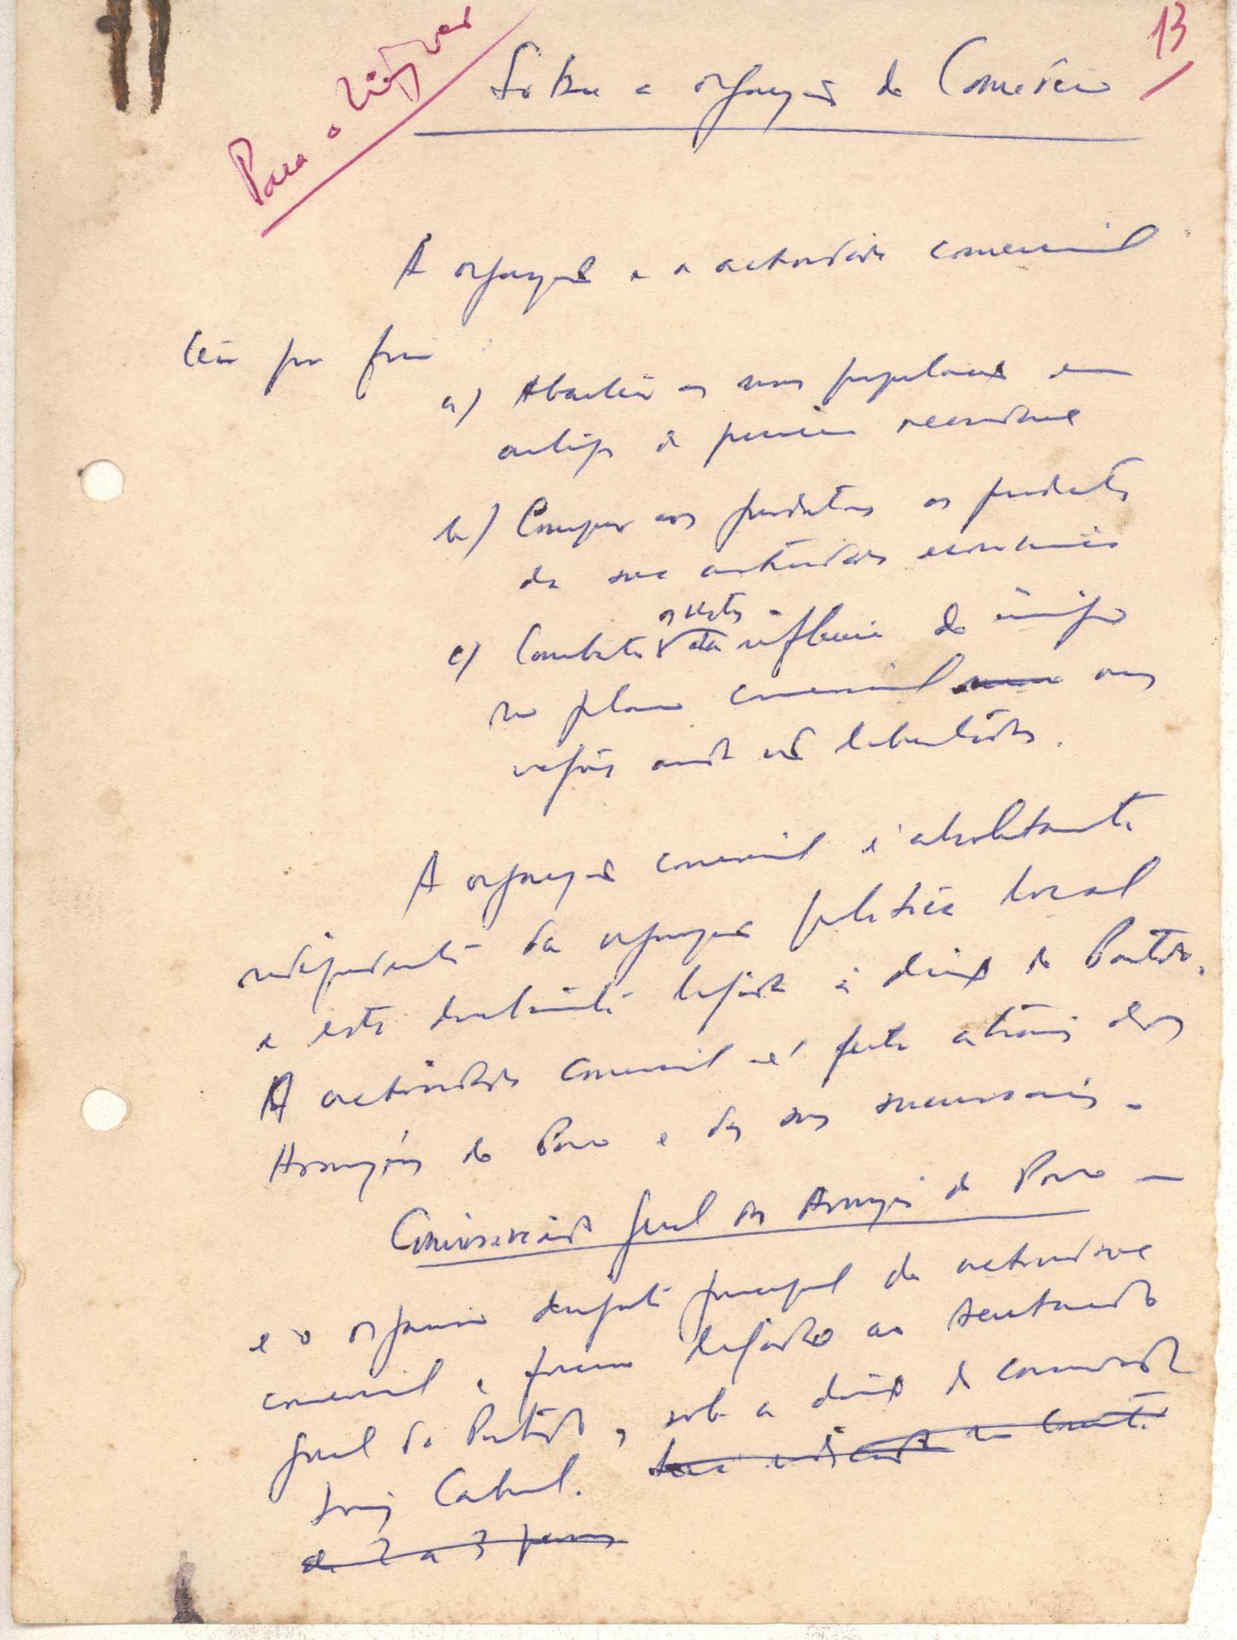 13
Para o
Sobre a organização do Comércio
A organização e a actividade comercial
têm por fim
a) Abastecer as nossas populações em
artigos de primeira necessidade
b) Comprar aos produtores os produtos
da sua actividade económica
c) Combater os restos da influência do inimigo
no plano comercial nas
regiões ainda não libertadas.
A organização comercial é absolutamente
independente da organização política local
e está directamente ligada à direcção do Partido.
A actividade comercial é feita através dos
Armazéns do Povo e das suas sucursais.
Comissariado Geral dos Armazéns do Povo —
é o organismo dirigente principal da actividade
comercial, e ligado ao Secretariado
Geral do Partido, sob a direcção do camarada
Luiz Cabral. Será indicado um Comité
de 2 a 3 pessoas